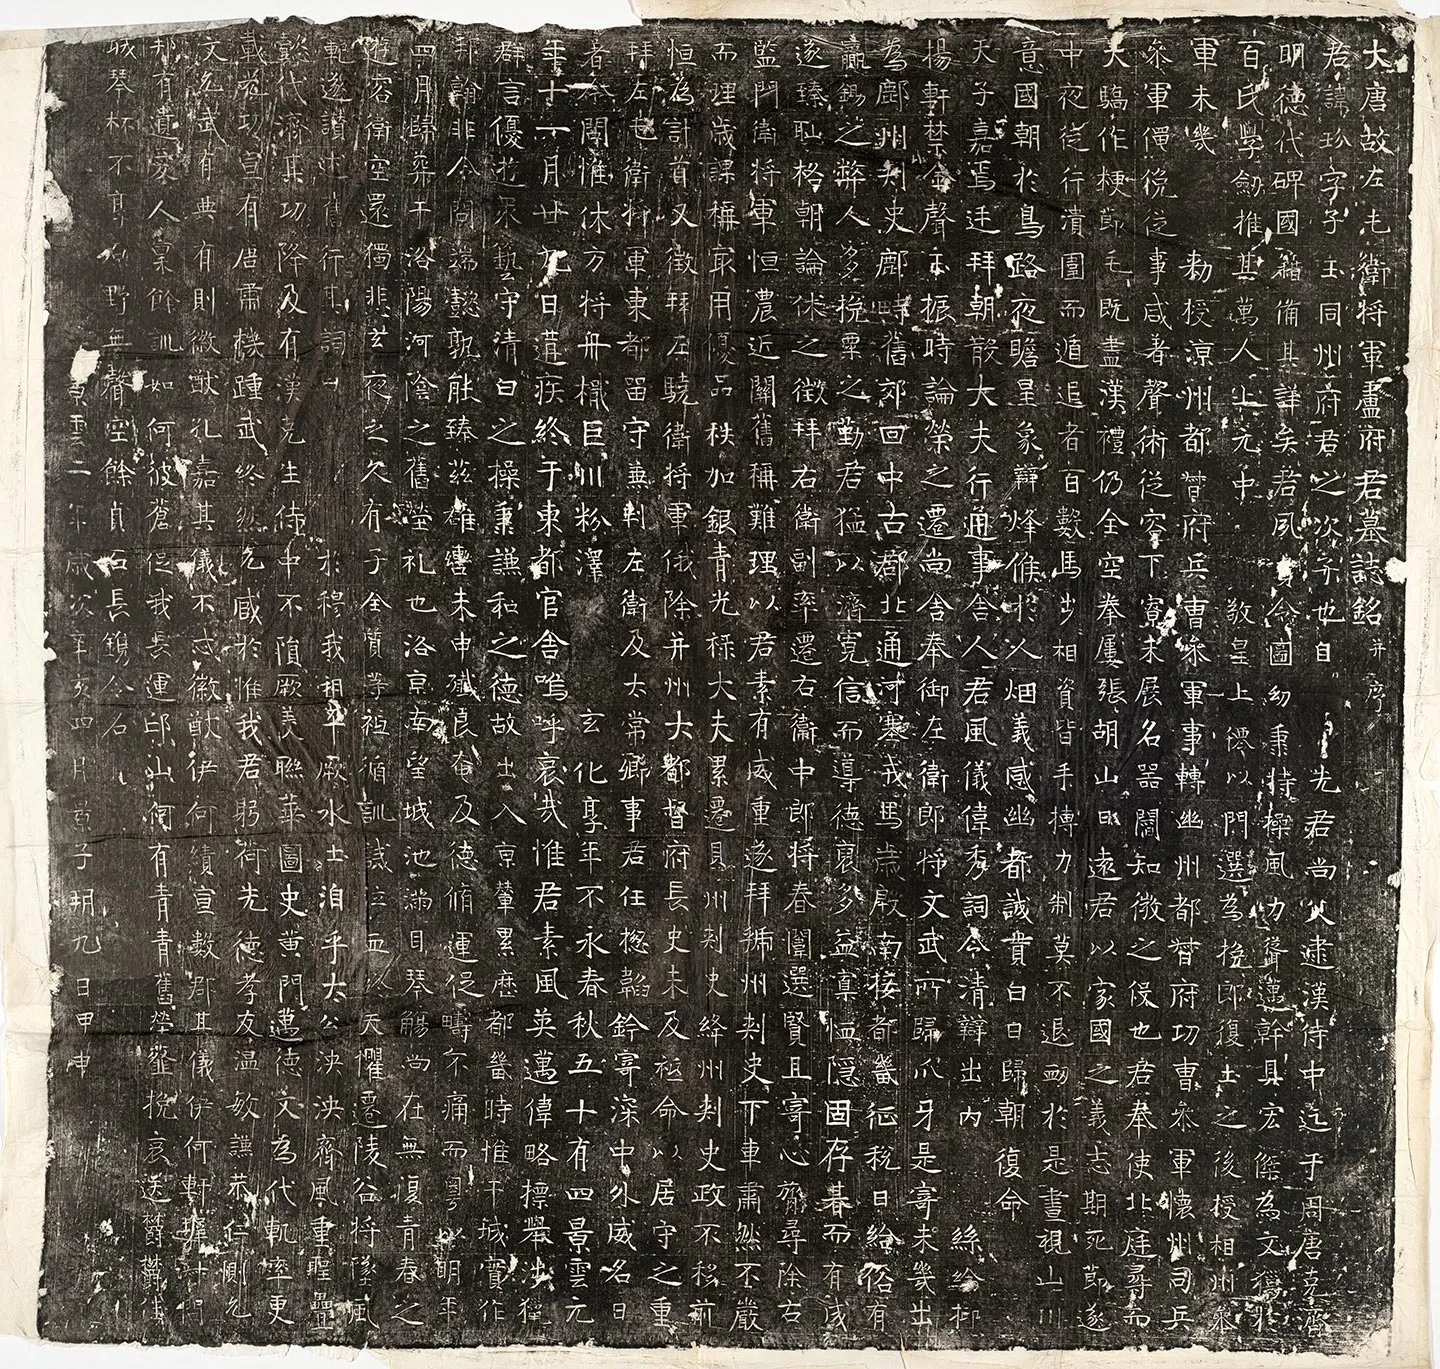 大唐故左屯衛將軍盧府君墓誌銘并序
君諱玢字子玉同州府君之次子也自先君尚父逮漢侍中迄于周唐克濟
明德代碑國籍備其詳矣君夙令圖幼秉特操風力聳邁幹具宏傑為文獨
百氏學劒推其萬人上元中敬皇上僊以門選為挽郎復土之後授相州
軍未幾勑授涼州都督府兵曹參軍事轉幽州都督府功曹參軍懷州司兵
參軍僶俛從事咸著聲術從容下寮未展名器聞知微之役也君奉使北庭尋而
大驕作梗節毛既盡漢禮仍全空拳屢張胡山日遠君以家國之義志期死節遂
中夜徒行潰圍而遁追者百數馬步相資皆手搏力制莫不退衂於是晝視山川
意國朝於鳥路夜瞻星象辯烽候於人烟義感幽都誠貫白日歸朝復命
天子嘉焉廷拜朝散大夫行通事舍人君風儀偉秀詞令清辯出內絲綸抑
揚軒禁金聲玉振時論榮之遷尚舍奉御左衛郎將文武所歸爪牙是寄未幾出
為鄜州刺史鄜畤舊郊回中古郡北通河塞戎馬歲殷南接都畿征稅日給俗有
羸錫之弊人多挽粟之勤君猛以濟寬信而導德裒多益寡恤隱固存朞而有成
遂臻耻格朝論休之徵拜右衛副率遷右衛中郎將春闈選賢且寄心膂尋除右
監門衛將軍恒農近關舊稱難理以君素有威重遂拜虢州刺史下車肅然不嚴
而理歲課稱最用優品秩加銀青光祿大夫累遷貝州刺史絳州刺史政不移前
恒為計首又徵拜左驍衛將軍俄除并州大都督府長史未及祗命以居守之重
拜左屯衛將軍東都留守兼判左衛及太常卿事君任揔韜鈐寄深中外威名日
著夲閣惟休方將舟檝巨川粉澤玄化享年不永春秋五十有四景雲元
年十一月廿九日遘疾終于東都官舍嗚呼哀哉惟君素風英邁偉略摽舉涉獵
群言優遊衆藝守清白之操秉謙和之德故出入京輦累歷都畿時惟干城實作
邦翰非令問端懿孰能臻茲雄轡未申殲良奄及德脩運促疇不痛而粵以明年
四月歸葬于洛陽河陰之舊塋礼也洛京南望城池滿目琴觴尚在無復青春之
遊容衛空還獨悲玄夜之久有子全貞等祗循訓誡泣血終天懼遷陵谷將墜風
範遂讚述貞行其詞曰於穆我祖平厥水土洎乎太公泱泱齊風重理疊
懿代濟其功降及有漢克生侍中不隕厥美聯華圖史黃門邁德文為代軌率更
載茂功宣有居肅機踵武終然允臧於惟我君躬荷先德孝友溫敏謙恭仁惻允
文允武有典有則微猷孔嘉其儀不忒徽猷伊何績宣數郡其儀伊何軒墀
邦有遺愛人稟餘訓如何彼蒼促我長運邙山何有青青舊塋薤挽哀送欝欝佳
城琴杯不享郊野無聲空餘貞石長鐫令名
景雲二年歲次辛亥四月景子朔九日甲申